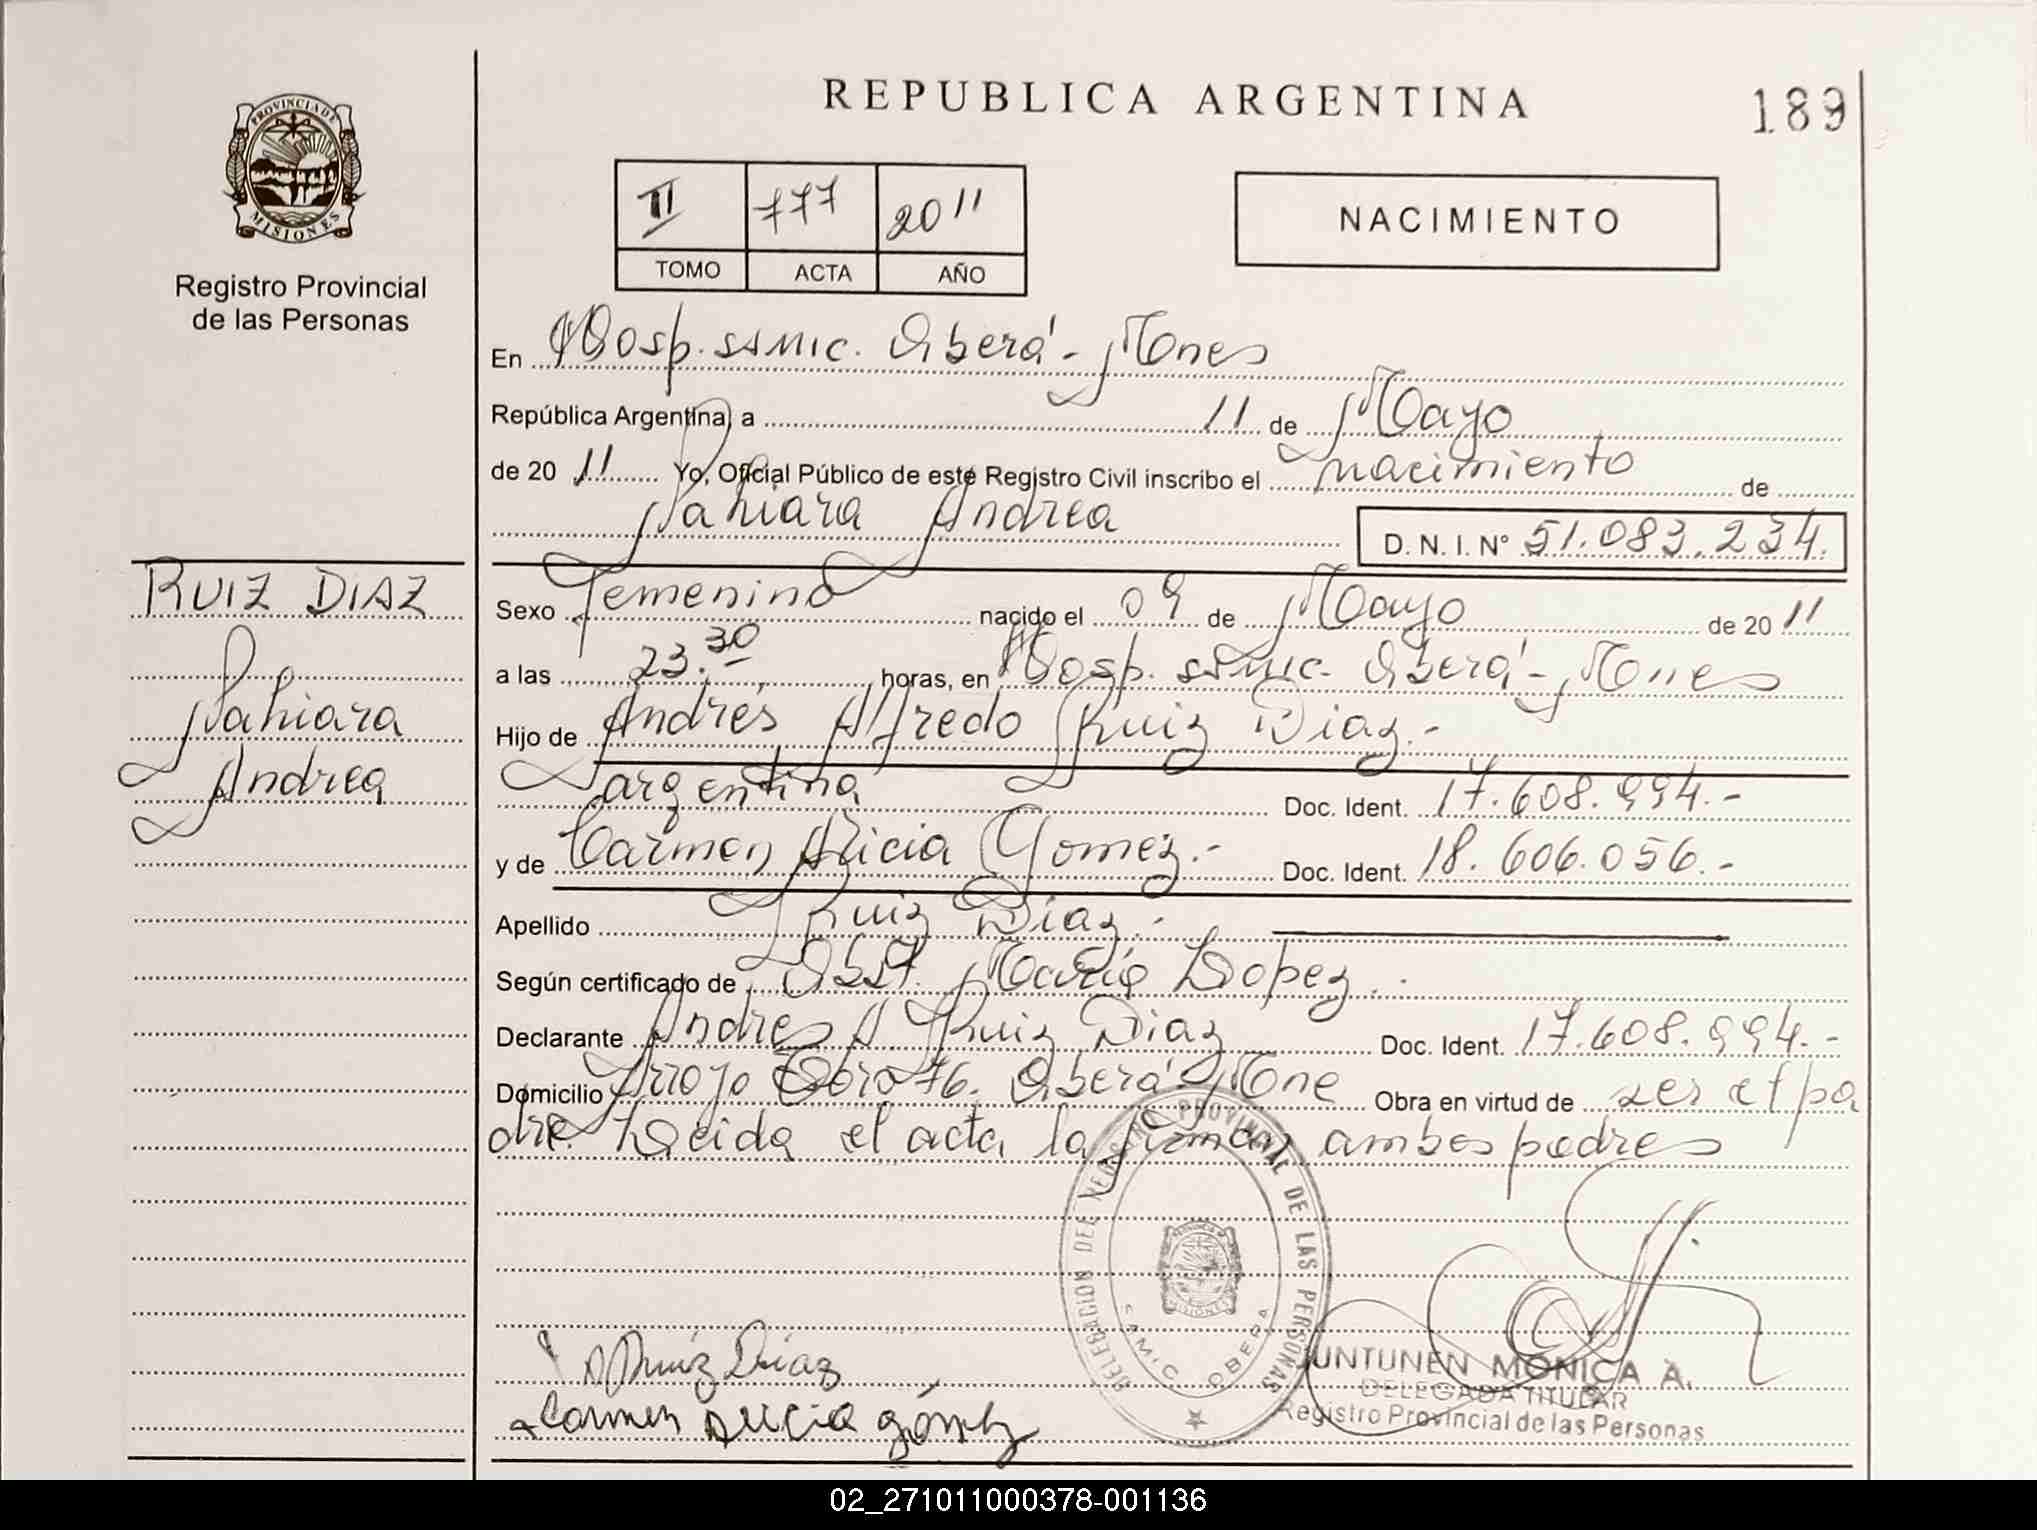 REPUBLICA ARGENTINA
189
PROVINCIA DE
MISIONES
Registro Provincial
de las Personas
II 777 2011
TOMO ACTA AÑO
NACIMIENTO
En Hosp. SAMIC. Oberá - Mnes
República Argentina, a 11 de Mayo
de 2011 Yo, Oficial Público de este Registro Civil inscribo el nacimiento de
Nahiara Andrea
D. N. I. N° 51.083.234.
RUIZ DIAZ
Nahiara
Andrea
Sexo Femenino nacido el 09 de Mayo de 2011
a las 23.30 horas, en Hosp. SAMIC. Oberá - Mnes
Hijo de Andrés Alfredo Ruiz Diaz.-
argentina Doc. Ident. 17.608.994.-
y de Carmen Alicia Gomez.- Doc. Ident. 18.606.056.-
Apellido Ruiz Diaz.-
Según certificado de Obst. María Lopez.
Declarante Andres A. Ruiz Diaz Doc. Ident. 17.608.994.-
Domicilio Arroyo 76. Oberá - Mne Obra en virtud de ser el pa
dre. Leida el acta la firman ambos padres
DELEGACION DEL REGISTRO PROVINCIAL DE LAS PERSONAS
SAMIC OBERA
MISIONES
A Ruiz Diaz
Carmen Alicia Gómez
JUNTUNEN MONICA A.
DELEGADA TITULAR
Registro Provincial de las Personas
02_271011000378-001136